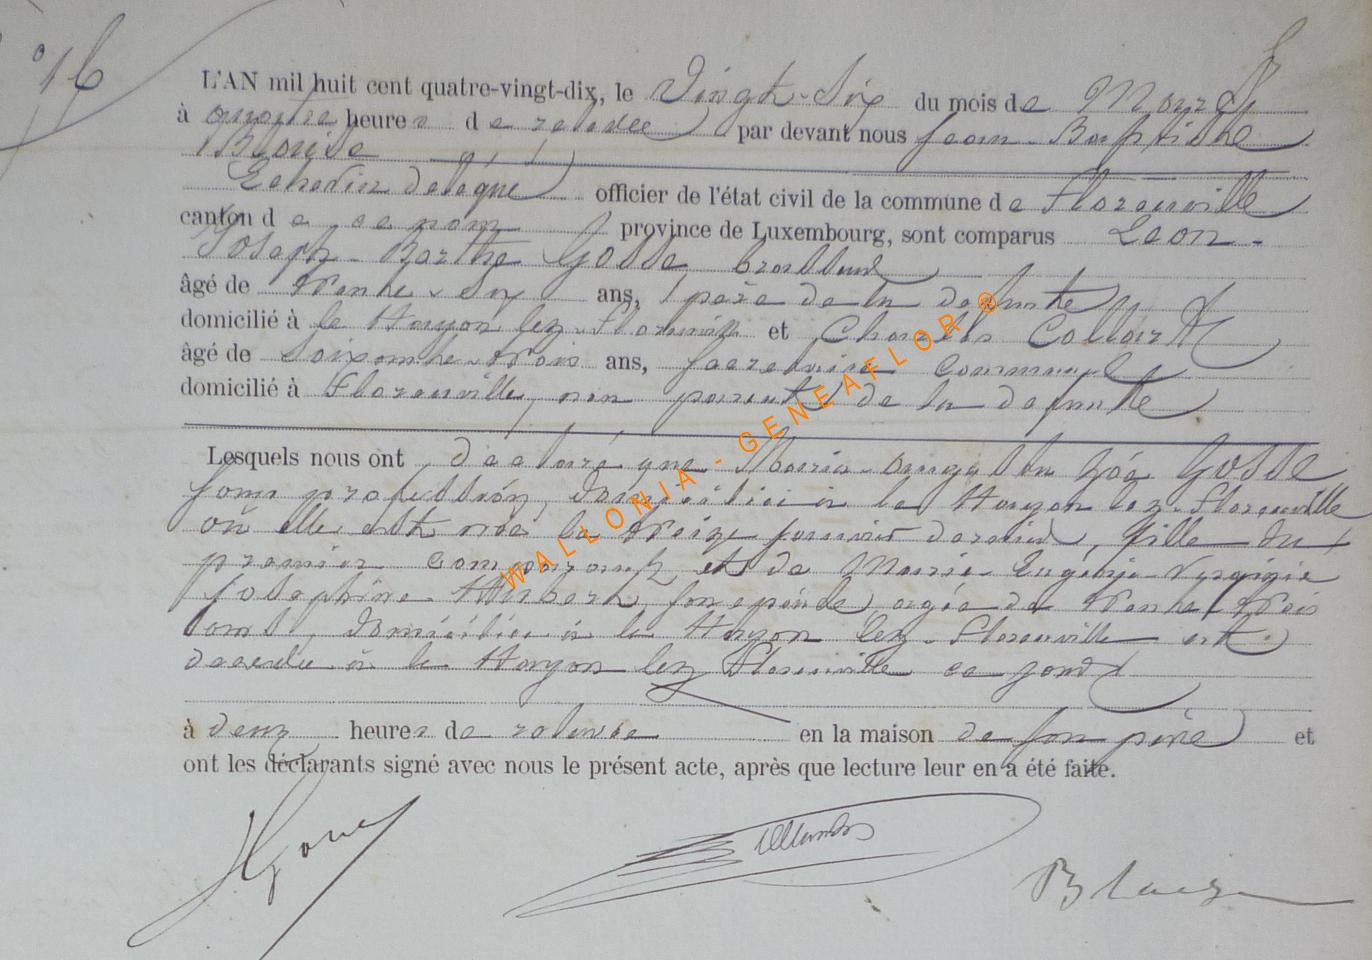 N° 16
L'AN mil huit cent quatre-vingt-dix, le Vingt-Six du mois de Mars
à quatre heures de relevée par devant nous Jean-Baptiste
Blaise
Echevin délégué officier de l'état civil de la commune de Florenville
canton de ce nom province de Luxembourg, sont comparus Léon-
Joseph- Gosse
âgé de trente-six ans, père de la défunte
domicilié à le Hayon lez-Florenville et Charles
âgé de soixante-trois ans, secrétaire communal
domicilié à Florenville, non parent de la défunte
Lesquels nous ont déclaré que Maria- Gosse
sans profession, domiciliée à le Hayon lez-Florenville
où elle est née le treize janvier dernier, fille du
premier comparant, et de Marie Eugénie-Virginie
Joséphine son épouse, âgée de trente-trois
ans, domiciliée à le Hayon lez-Florenville est
décédée à le Hayon lez Florenville ce jour
à deux heures de relevée en la maison de son père et
ont les déclarants signé avec nous le présent acte, après que lecture leur en a été faite.
Blaise
WALLONIA - GENEAFLOR ®